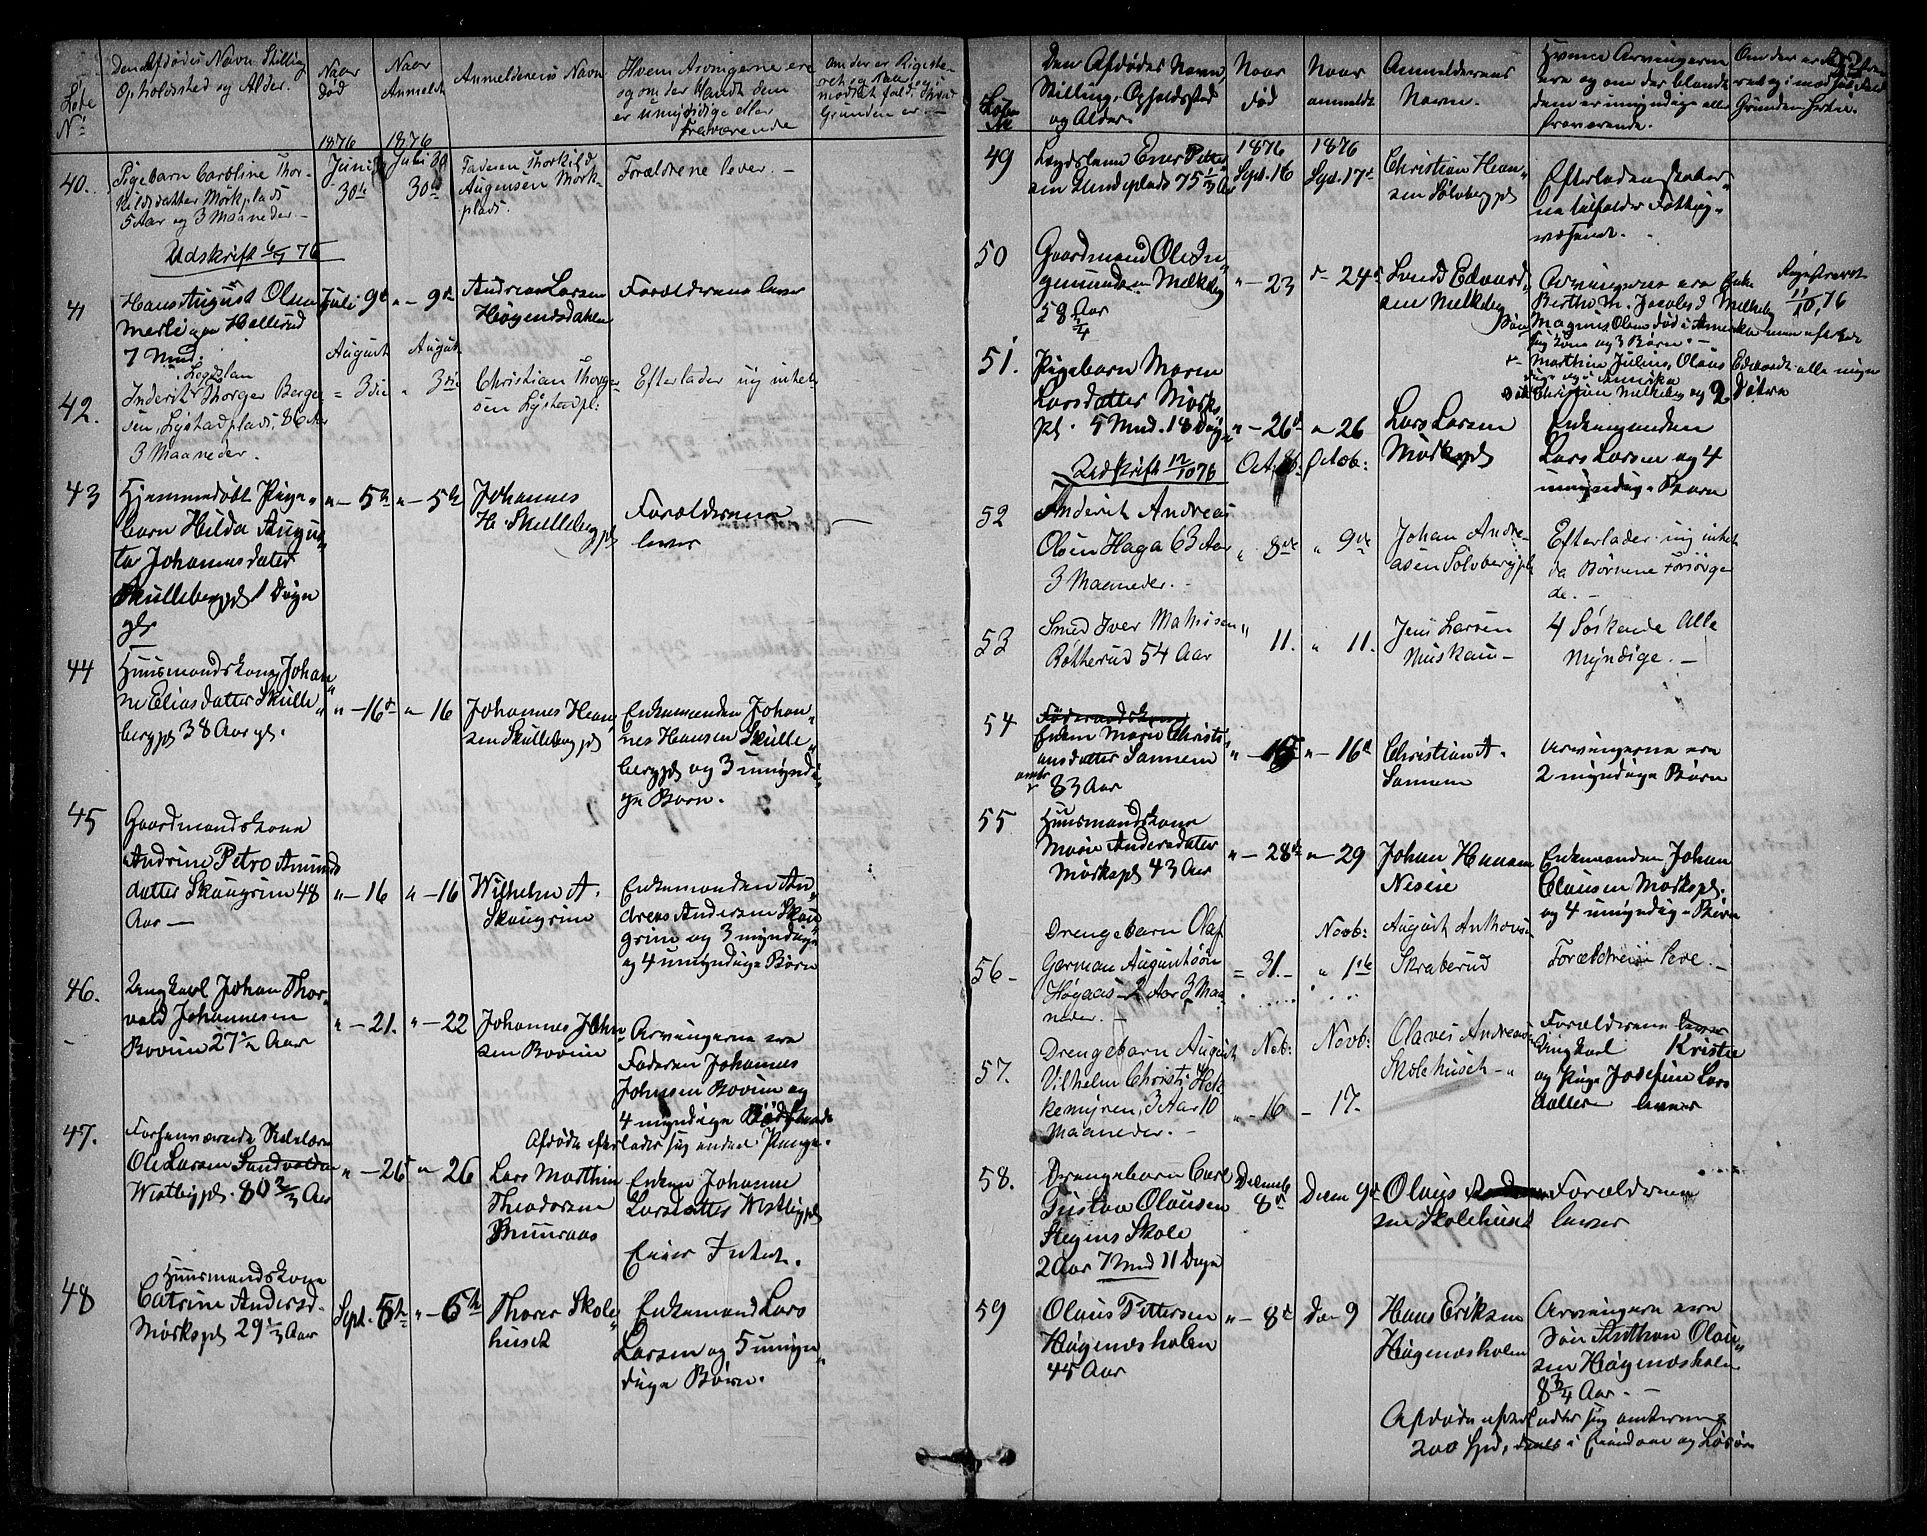 Løbe
No
Den Afdødes Navn Stilling
Opholdssted og Alder.
Naar
død
Naar
Anmeldt
Anmelderens Navn
Hvem Arvingerne ere
og om der blandt dem
er umyndige eller
fraværende
Om der er Registe-
ret og i
modsat fald, hvad
Grunden er
1876
1876
40.
Pigebarn Caroline Thor-
kildsdatter Mørkplads
5 Aar og 3 Maaneder
Juni
30te
Juli
30te
Faderen Thorkild
Augensen Mørk-
plads.
Forældrene lever.
Udskrift 6/7 76
41
Hans August Olsen
Hellerud
7 Mnd.
Juli 9d
" 9d
Andreas Larsen
Høgendsdahlen
Forældrene lever
August
August
42.
Inderst Thorger Berge-
sen, Lystadplads, 86 Aar
3 Maaneder.
= 3die
" 3die
Christian Thorge-
sen Lystadpl:
Efterlader sig intet
43
Hjemmedøbt Pige-
barn Hilda Augus-
ta Johannesdater
Skullebergpl 1 Døgn
gl.
" - 5te
" - 5te
Johannes
H. Skullebergpl
Forældrene
lever
44
Huusmandskone Johan
ne Eliasdatter Skulle
bergpl 38 Aar gl.
" - 16d
" 16
Johannes Han
sen Skullebergpl
Enkemanden Johan
nes Hansen Skulle
bergpl og 3 umyndi
ge Børn.
45
Gaardmandskone
Andrine Petro Amund
datter Skaugrim 48
Aar —
" - 16
" - 16
Wilhelm A.
Skaugrim
Enkemanden An
dreas Andersen Skau
grim og 3 myndige
og 4 umyndige Børn
46.
Ungkarl Johan Thor-
vald Johannesen
Bovim 27½ Aar
" - 21.
" - 22
Johannes John
sen Bovim
Arvingerne ere
Faderen Johannes
Johnsen Bovim og
4 myndige
Afdøde efterlader sig endeel Penge.
47.
Forhenværende
Ole Larsen Sandvolden
Westbypl. 80 2/3 Aar
" - 26
" 26
Lars Marthin
Theodorsen
Enken Johanne
Larsdatter Westbypl
Eier Intet.
48
Huusmandskone
Catrine Andersd
Mørkspl 29 1/3 Aar
Sept. 5te
" - 6te
Thorer Skole
huset
Enkemand Lars
Larsen og 5 umyn
dige Børn.
Løbe
No
Den Afdødes Navn,
Stilling, Opholdssted
og Alder.
Naar
død
Naar
anmeldt
Anmelderens
Navn.
Hvem Arvingerne
ere og om der blandt
dem er umyndige eller
fraværende.
Om der er Registe
ret og i modsat fald
Grunden hertil.
1876
1876
49
Lægdslem Ener Petter
sen Lundeplads 75 1/3 Aar
Sept. 16
Sept. 17d
Christian Han
sen Sølvbergpl
Efterladenskaber
ne tilfalder Fattig-
væsenet.
50
Gaardmand Ole In
gmundsen Melkeby
58 3/4 Aar
" - 23
" 24d
Svend Edvard
sen Melkeby
Arvingerne ere Enke
Berthe M. Jacobsd Melkeby
Børn Magnus Olsen død i Amerika men efterl
sig Kone og 3 Børn.
Marthin Julius, Olaus Edvard alle myn
dige og i Amerika
Christian Melkeby og 2 Døtre
Registreret
11/10, 76
51.
Pigebarn Maren
Larsdatter Mørks
pl. 5 Mnd. 18 Døgn
" - 26d
" 26
Lars Larsen
Mørkspl
Enkemanden
Lars Larsen og 4
umyndige Børn
Udskrift 12/10 76
Octob:
Octob:
52
Inderst Andreas
Olsen Haga 63 Aar
3 Maaneder.
" 8de
" 9de
Johan Andre-
asen Sølvbergpl
Efterlader sig intet
da Børnene Forsørge
de.
53
Smed Iver Mathisen
Røtterud 54 Aar
" 11.
" 11.
Jens Larsen
4 Søskende Alle
Myndige.
54
Enken Maren Christi
ansdatter Sannem
83 Aar
" - 15
" - 16d
Christian A.
Sannem
Arvingerne ere
2 myndige Børn
55
Huusmandskone
Maren Andersdater
Mørkspl 43 Aar
" - 28d
" - 29
Johan Hansen
Neseie
Enkemanden Johan
Olausen Mørkspl.
og 4 umyndige Børn
56
Drengebarn Olaf
German Augustsøn
Høgaas - 2 Aar 3 Maa
neder.
= 31.
Novb:
" 1ste
August Anthonisen
Skraterud
Forældrene leve.
57.
Drengebarn August
Vilhelm Christi
kemyren, 3 Aar 10
Maaneder.
Nob:
" 16
Novb:
17.
Olaves Andreas
Skolehuset
Forældrene lever
Ungkarl Kristie
og Pige Josefine Lars
datter lever
58.
Drengebarn Carl
Gustav Olausen
Skole
2 Aar 7 Mnd 11 Døgn
Decemb
8d
Decem 9d
Olaus
sen Skolehuset
Forældrene
lever
59
Olaus Pettersen
Høgendsholen
45 Aar
" - 8d
Den 9
Hans Eriksen
Høgendsholen
Arvingerne ere
Søn Anthon Olau
sen Høgendsholen
8 3/4 Aar.
Afdøde efterlader sig omtrent
200 Spd, deels i Eiendom og Løsøre